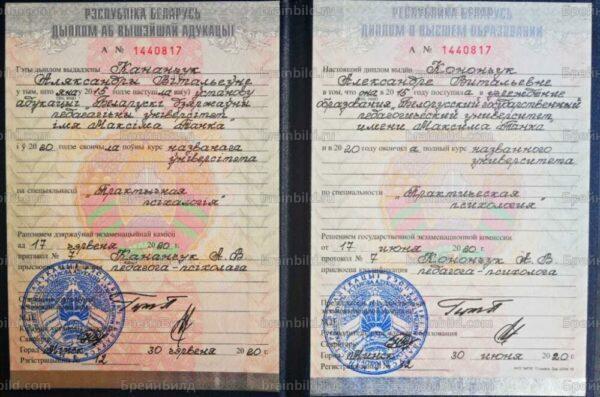 РЭСПУБЛІКА БЕЛАРУСЬ
ДЫПЛОМ АБ ВЫШЭЙШАЙ АДУКАЦЫІ
А № 1440817
Гэты дыплом выдадзены Кананчук
Аляксандры Вітальеўне
у тым, што яна у 2015 годзе паступіла ва(у) установу
адукацыі "Беларускі дзяржаўны
педагагічны універсітэт
імя Максіма Танка"
і ў 2020 годзе скончыла поўны курс названага
універсітэта
па спецыяльнасці "Практычная
псіхалогія"
Рашэннем дзяржаўнай экзаменацыйнай камісіі
ад 17 чэрвеня 2020 г.
пратакол № 7 Кананчук А В
педагога-псіхолага
Горад Мінск 30 чэрвеня 2020 г.
Рэгістрацыйны № 12
РЕСПУБЛИКА БЕЛАРУСЬ
ДИПЛОМ О ВЫСШЕМ ОБРАЗОВАНИИ
А № 1440817
Настоящий диплом выдан Конончук
Александре Витальевне
в том, что она в 2015 году поступила в учреждение
образования "Белорусский государственный
педагогический университет
имени Максима Танка
и в 2020 окончила полный курс названного
университета
по специальности "Практическая
психология"
Решением государственной экзаменационной комиссии
от 17 июня 2020 г.
протокол № 7 Конончук А В
присвоена квалификация педагога-психолога
Город Минск 30 июня 2020 г.
БрейнБилд
brainbild.com